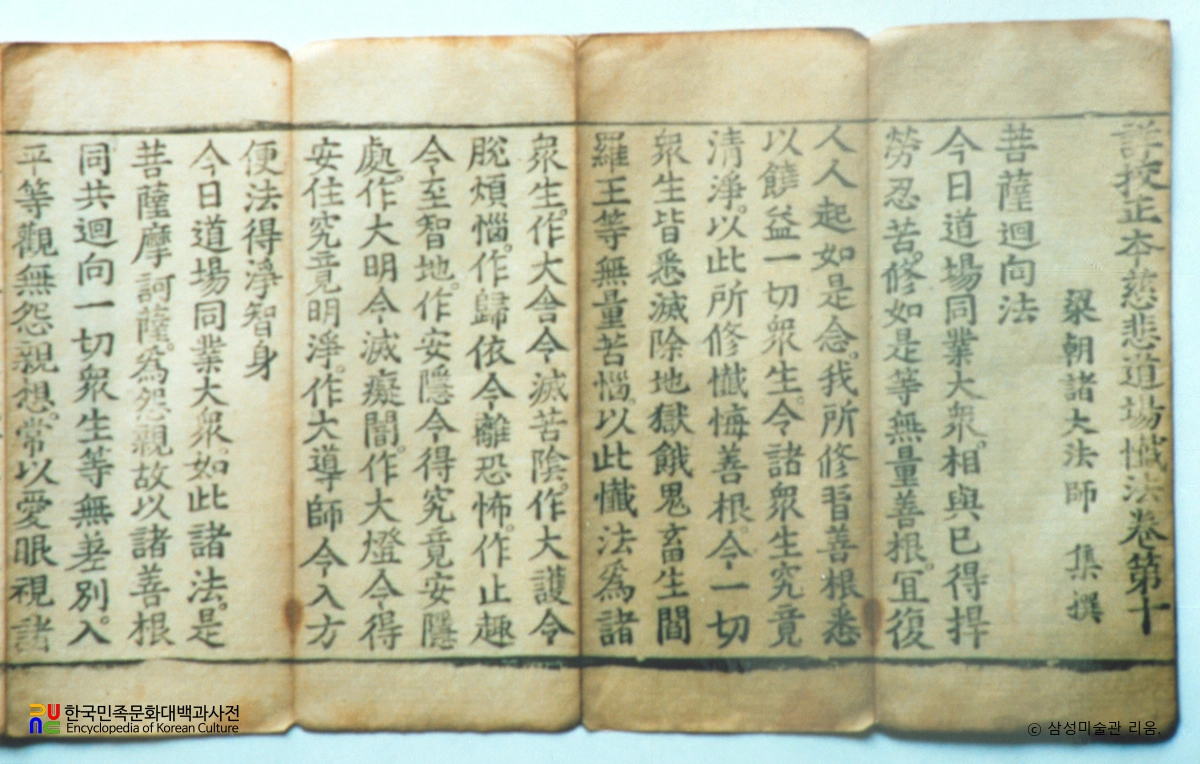 詳挍正本慈悲道場懺法卷第十
梁朝諸大法師 集撰
菩薩迴向法
今日道場同業大衆。相與已得捍
勞忍苦。修如是等無量善根。冝復
人人起如是念。我所修習善根悉
以饒益一切衆生。令諸衆生究竟
清淨。以此所修懺悔善根。令一切
衆生皆悉滅除地獄餓鬼畜生閻
羅王等無量苦惱。以此懺法爲諸
衆生。作大舍令滅苦陰。作大護令
脫煩惱。作歸依令離恐怖。作止趣
令至智地。作安隱令得究竟安隱
處。作大明令滅癡闇。作大燈令得
安住究竟明淨。作大導師令入方
便法得淨智身
今日道場同業大衆。如此諸法。是
菩薩摩訶薩。爲怨親故以諸善根
同共迴向一切衆生等無差別。入
平等觀無怨親想。常以愛眼視諸
한국민족문화대백과사전
Encyclopedia of Korean Culture
© 삼성미술관 리움.